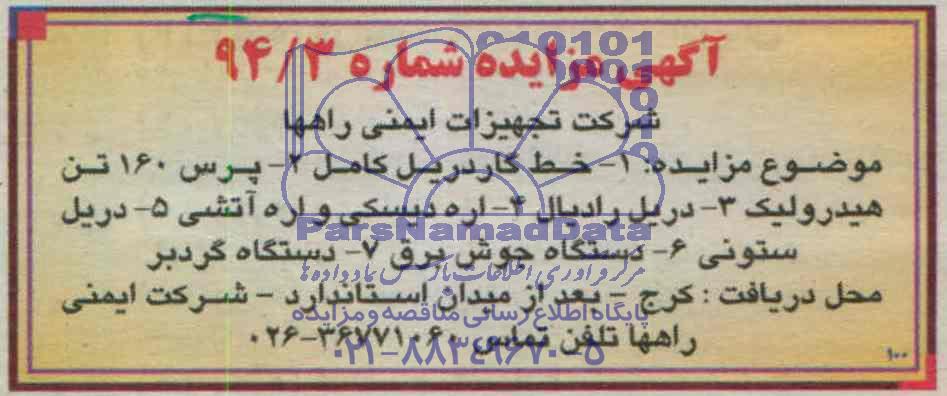 آگهی مزایده شماره ۹۴/۳
شرکت تجهیزات ایمنی راهها
موضوع مزایده: ۱- خط گاردریل کامل ۲- پرس ۱۶۰ تن
هیدرولیک ۳- دریل رادیال ۴- اره دیسکی و اره آتشی ۵- دریل
ستونی ۶- دستگاه جوش برق ۷- دستگاه گردبر
محل دریافت : کرج - بعد از میدان استاندارد - شرکت ایمنی
راهها تلفن تماس ۳۶۷۷۱۰۶۰-۰۲۶
۱۰۰
ParsNamadData
پایگاه اطلاع رسانی مناقصه و مزایده
۰۲۱-۸۸۳۴۹۶۷۰-۵